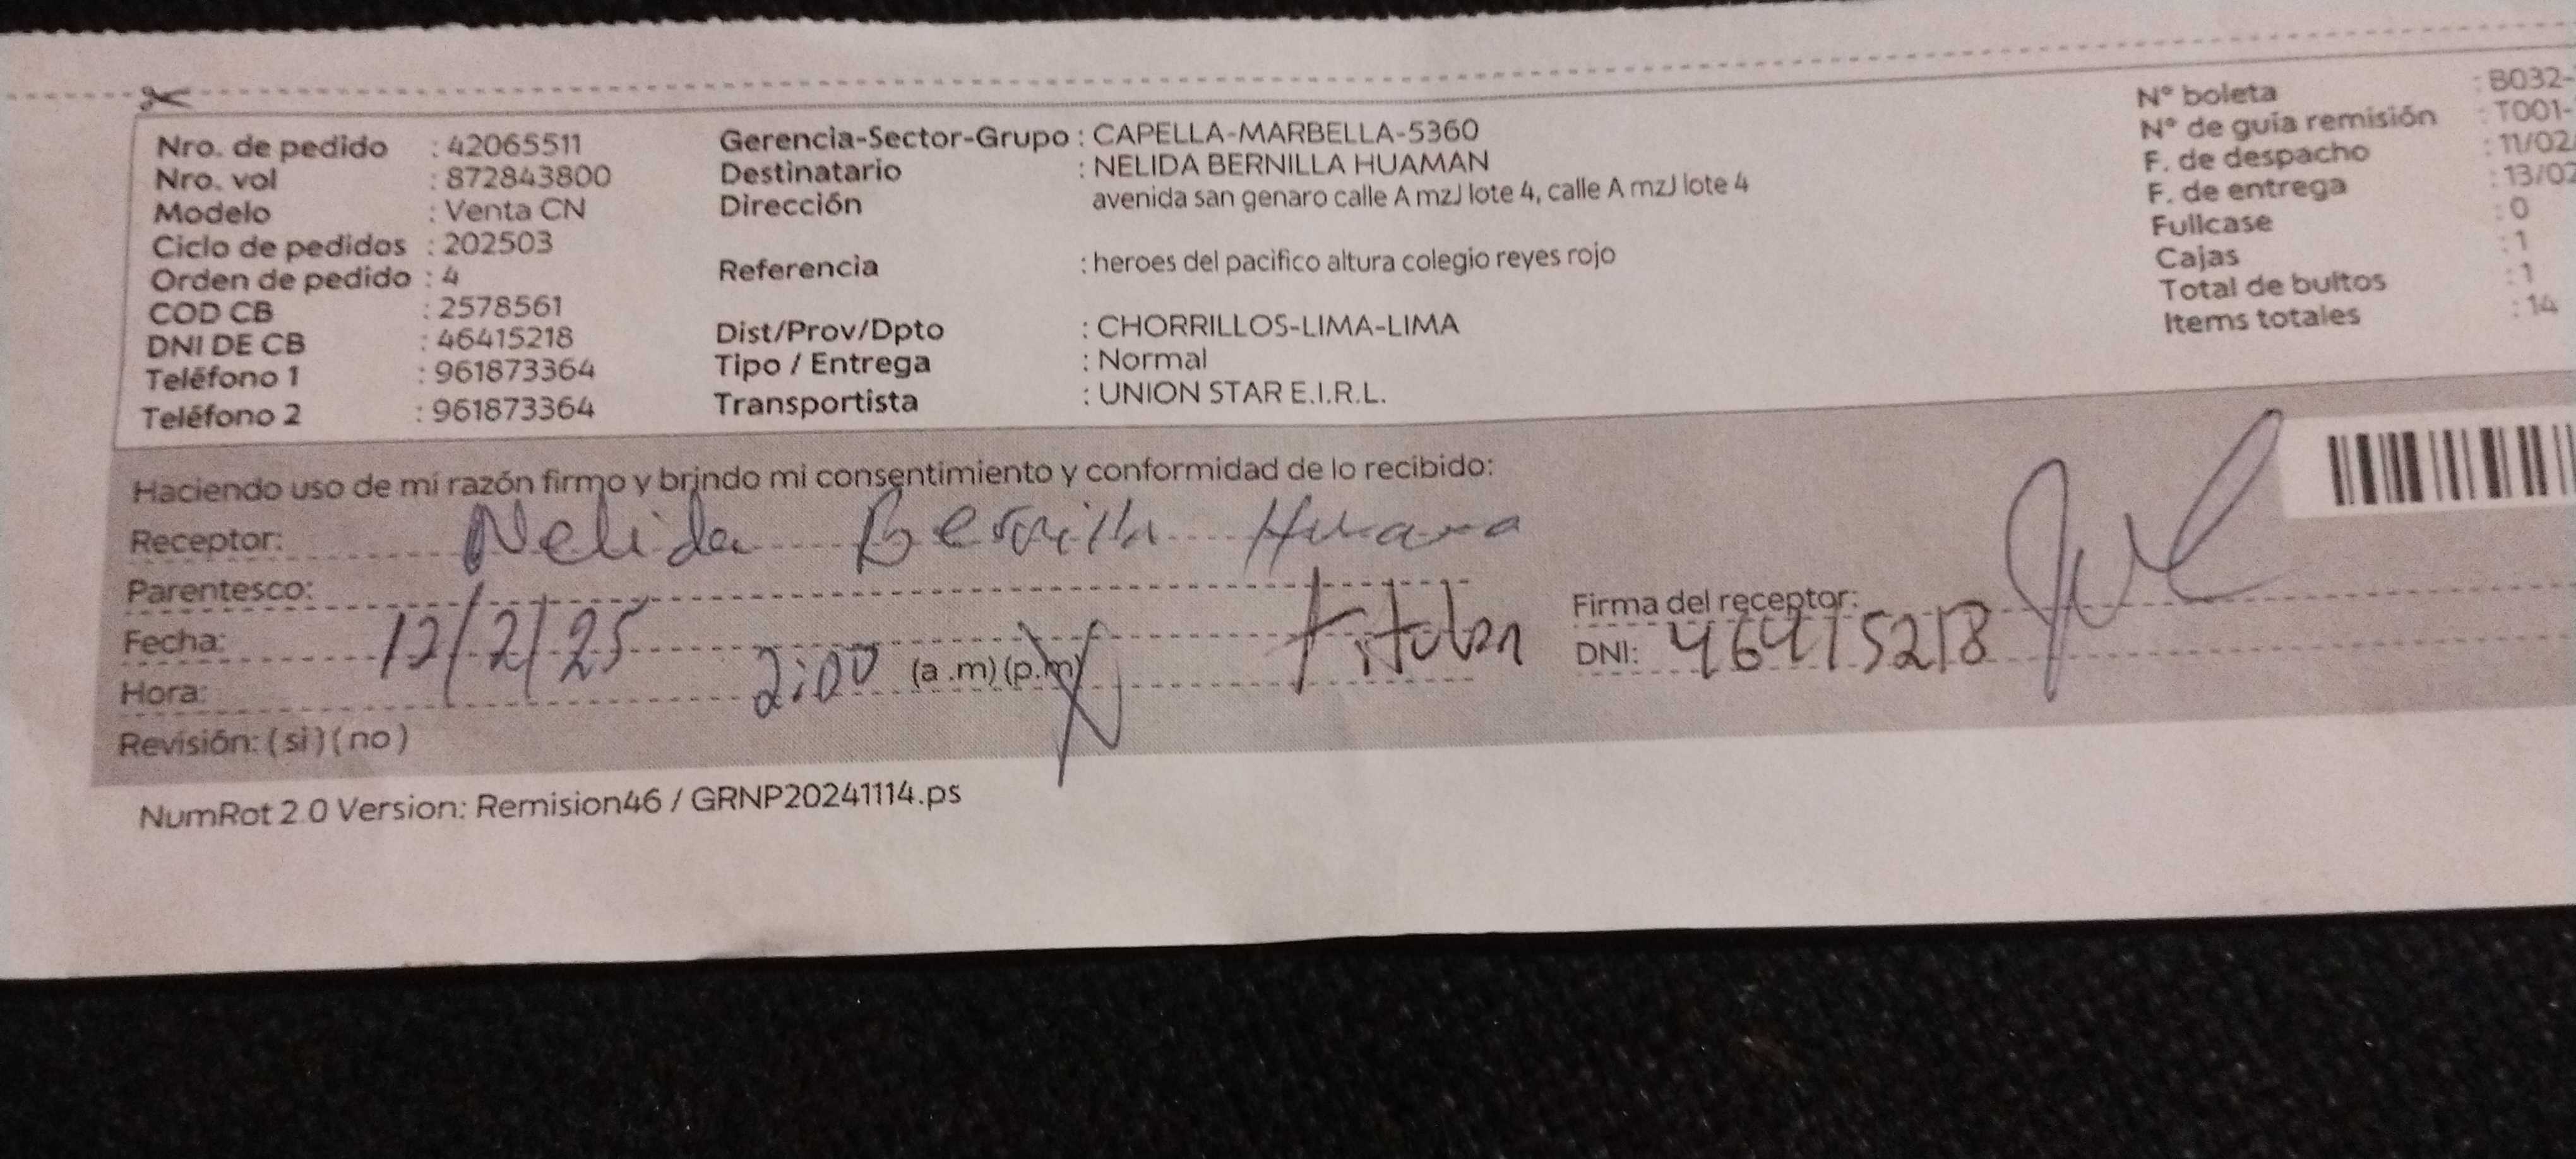 Nro. de pedido : 42065511
Nro. vol : 872843800
Modelo : Venta CN
Ciclo de pedidos : 202503
Orden de pedido : 4
COD CB : 2578561
DNI DE CB : 46415218
Teléfono 1 : 961873364
Teléfono 2 : 961873364
Gerencia-Sector-Grupo : CAPELLA-MARBELLA-5360
Destinatario : NELIDA BERNILLA HUAMAN
Dirección avenida san genaro calle A mzJ lote 4, calle A mzJ lote 4
Referencia : heroes del pacifico altura colegio reyes rojo
Dist/Prov/Dpto : CHORRILLOS-LIMA-LIMA
Tipo / Entrega : Normal
Transportista : UNION STAR E.I.R.L.
N° boleta : B032-
N° de guía remisión : T001-
F. de despacho : 11/02
F. de entrega : 13/02
Fullcase : 0
Cajas : 1
Total de bultos : 1
Items totales : 14
Haciendo uso de mi razón firmo y brindo mi consentimiento y conformidad de lo recibido:
Receptor: Nelida Bernilla Huaman
Parentesco: titular
Fecha: 12/2/25
Hora: 2:00 (a .m) (p.m)
Revisión: (si) (no)
Firma del receptor:
DNI: 46415218
NumRot 2.0 Version: Remision46 / GRNP20241114.ps